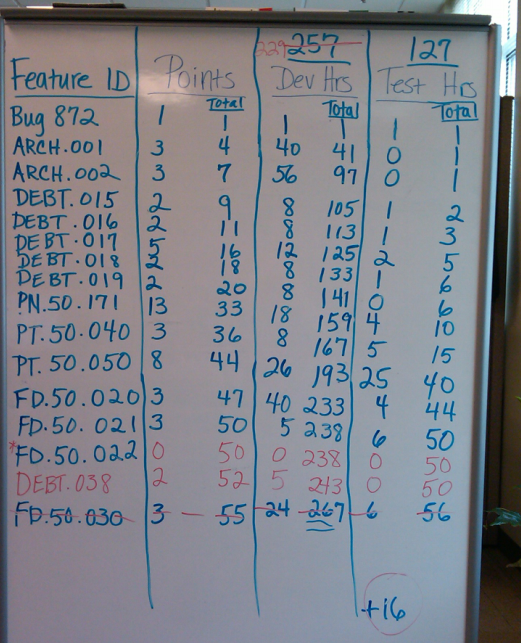 229 257 127
Feature ID Points Dev Hrs Test Hrs
Total Total Total
Bug 872 1 1 1 1 1 1
ARCH.001 3 4 40 41 0 1
ARCH.002 3 7 56 97 0 1
DEBT.015 2 9 8 105 1 2
DEBT.016 2 11 8 113 1 3
DEBT.017 5 16 12 125 2 5
DEBT.018 2 18 8 133 1 6
DEBT.019 2 20 8 141 0 6
PN.50.171 13 33 18 159 4 10
PT.50.040 3 36 8 167 5 15
PT.50.050 8 44 26 193 25 40
FD.50.020 3 47 40 233 4 44
FD.50.021 3 50 5 238 6 50
*FD.50.022 0 50 0 238 0 50
DEBT.038 2 52 5 243 0 50
FD.50.030 3 - 55 24 267 6 56
+16